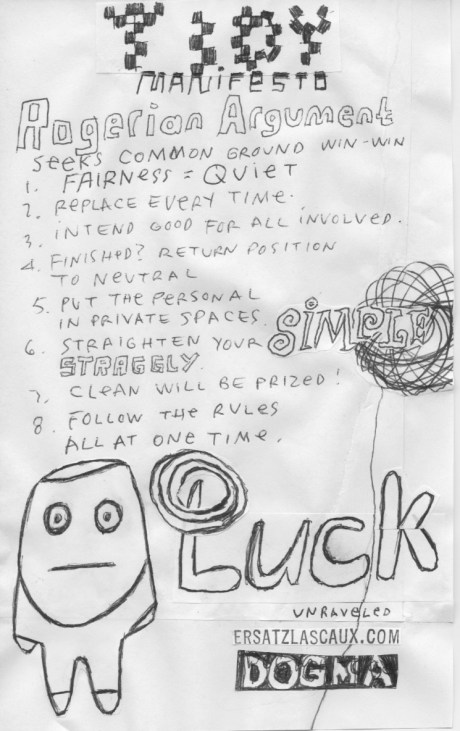 TIDY
MANIFESTO
Rogerian Argument
SEEKS COMMON GROUND WIN-WIN
1. FAIRNESS = QUIET
2. REPLACE EVERY TIME.
3. INTEND GOOD FOR ALL INVOLVED.
4. FINISHED? RETURN POSITION
TO NEUTRAL
5. PUT THE PERSONAL
IN PRIVATE SPACES.
SIMPLE
6. STRAIGHTEN YOUR
STRAGGLY.
7. CLEAN WILL BE PRIZED!
8. FOLLOW THE RULES
ALL AT ONE TIME.
Luck
UNRAVELED
ERSATZLASCAUX.COM
DOGMA